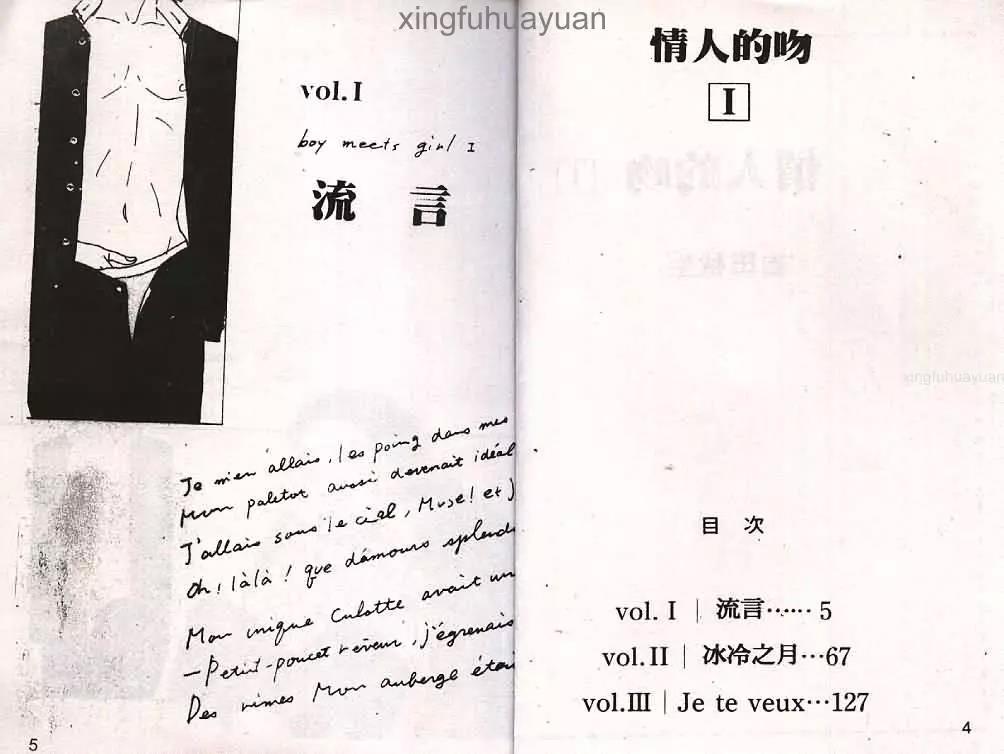 xingfuhuayuan
情人的吻
I
目 次
vol. I | 流言…… 5
vol. II | 冰冷之月…67
vol. III | Je te veux…127
4
xingfuhuayuan
vol. I
boy meets girl I
流 言
Je m'en allais, les poing dans mes
Mon paletot aussi devenait idéal
J'allais sous le ciel, Muse! et j
Oh! làlà! que d'amours splend
Mon unique Culotte avait un
—Petit-poucet rêveur, j'égrenais
Des rimes Mon auberge étai
5